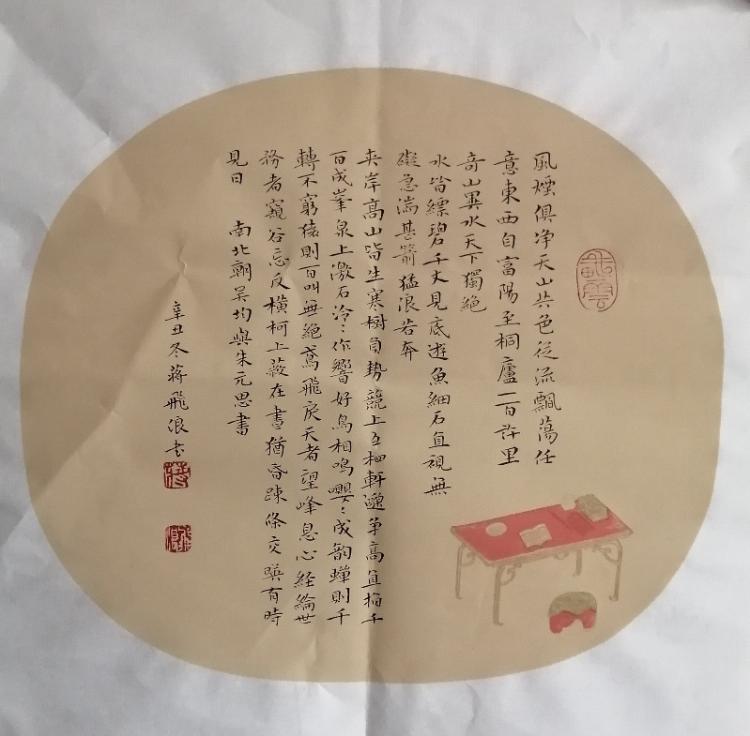 風煙俱净天山共色從流飄蕩任
意東西自富陽至桐廬一百許里
奇山異水天下獨絕
水皆縹碧千丈見底遊魚細石直視無
礙急湍甚箭猛浪若奔
夹岸高山皆生寒樹負勢競上互相軒邈争高直指千
百成峯泉上激石泠:作響好鳥相鳴嚶:成韵蟬則千
轉不窮猿則百叫無絕鳶飛戾天者望峰息心經綸世
務者窺谷忘反横柯上蔽在晝猶昏疎條交暎有時
見日 南北朝吴均與朱元思書
辛丑冬蔣飛浪书